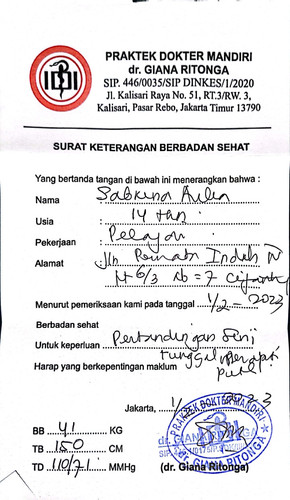 IDI
PRAKTEK DOKTER MANDIRI
dr. GIANA RITONGA
SIP. 446/0035/SIP DINKES/1/2020
Jl. Kalisari Raya No. 51, RT.3/RW. 3,
Kalisari, Pasar Rebo, Jakarta Timur 13790
SURAT KETERANGAN BERBADAN SEHAT
Yang bertanda tangan di bawah ini menerangkan bahwa :
Nama Sabrina Aulia
Usia 14 tan
Pekerjaan : Pelajar
Alamat Jln Permata Indah IV
6/3 no = 7
Menurut pemeriksaan kami pada tanggal 1/2 - 2023
Berbadan sehat
Untuk keperluan Pertandingan Seni
tunggal Merpati
putih
Harap yang berkepentingan maklum
Jakarta, 1/
PRAKTEK DOKTER MANDIRI
dr. GIANA RITONGA
BB 41 KG
TB 150 CM
TD 110/71 MMHg (dr. Giana Ritonga)